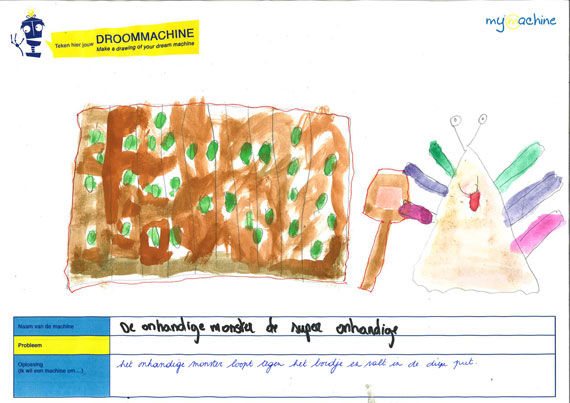 Teken hier jouw DROOMMACHINE
Make a drawing of your dream machine
my machine
Naam van de machine
De onhandige monster de super onhandige
Probleem
Oplossing
(ik wil een machine om....)
het onhandige monster loopt tegen het bordje en valt in de diepe put.